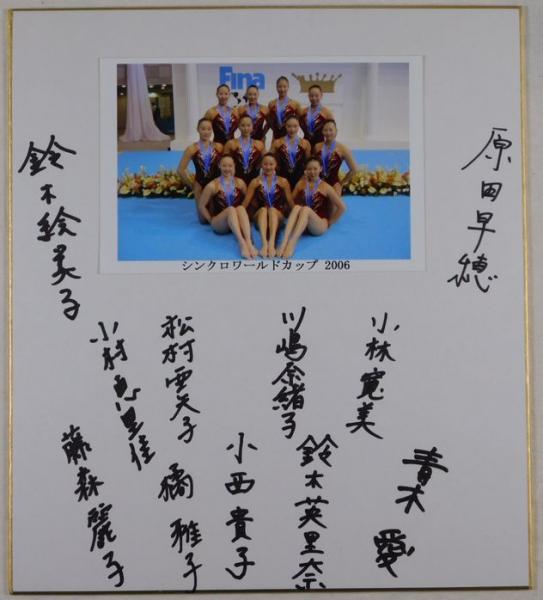 Fina
シンクロワールドカップ 2006
原田早穂
鈴木絵美子
小林寛美
川嶋奈緒子
松村亜矢子
小村恵里佳
青木愛
鈴木英里奈
小西貴子
橘雅子
藤森麗子